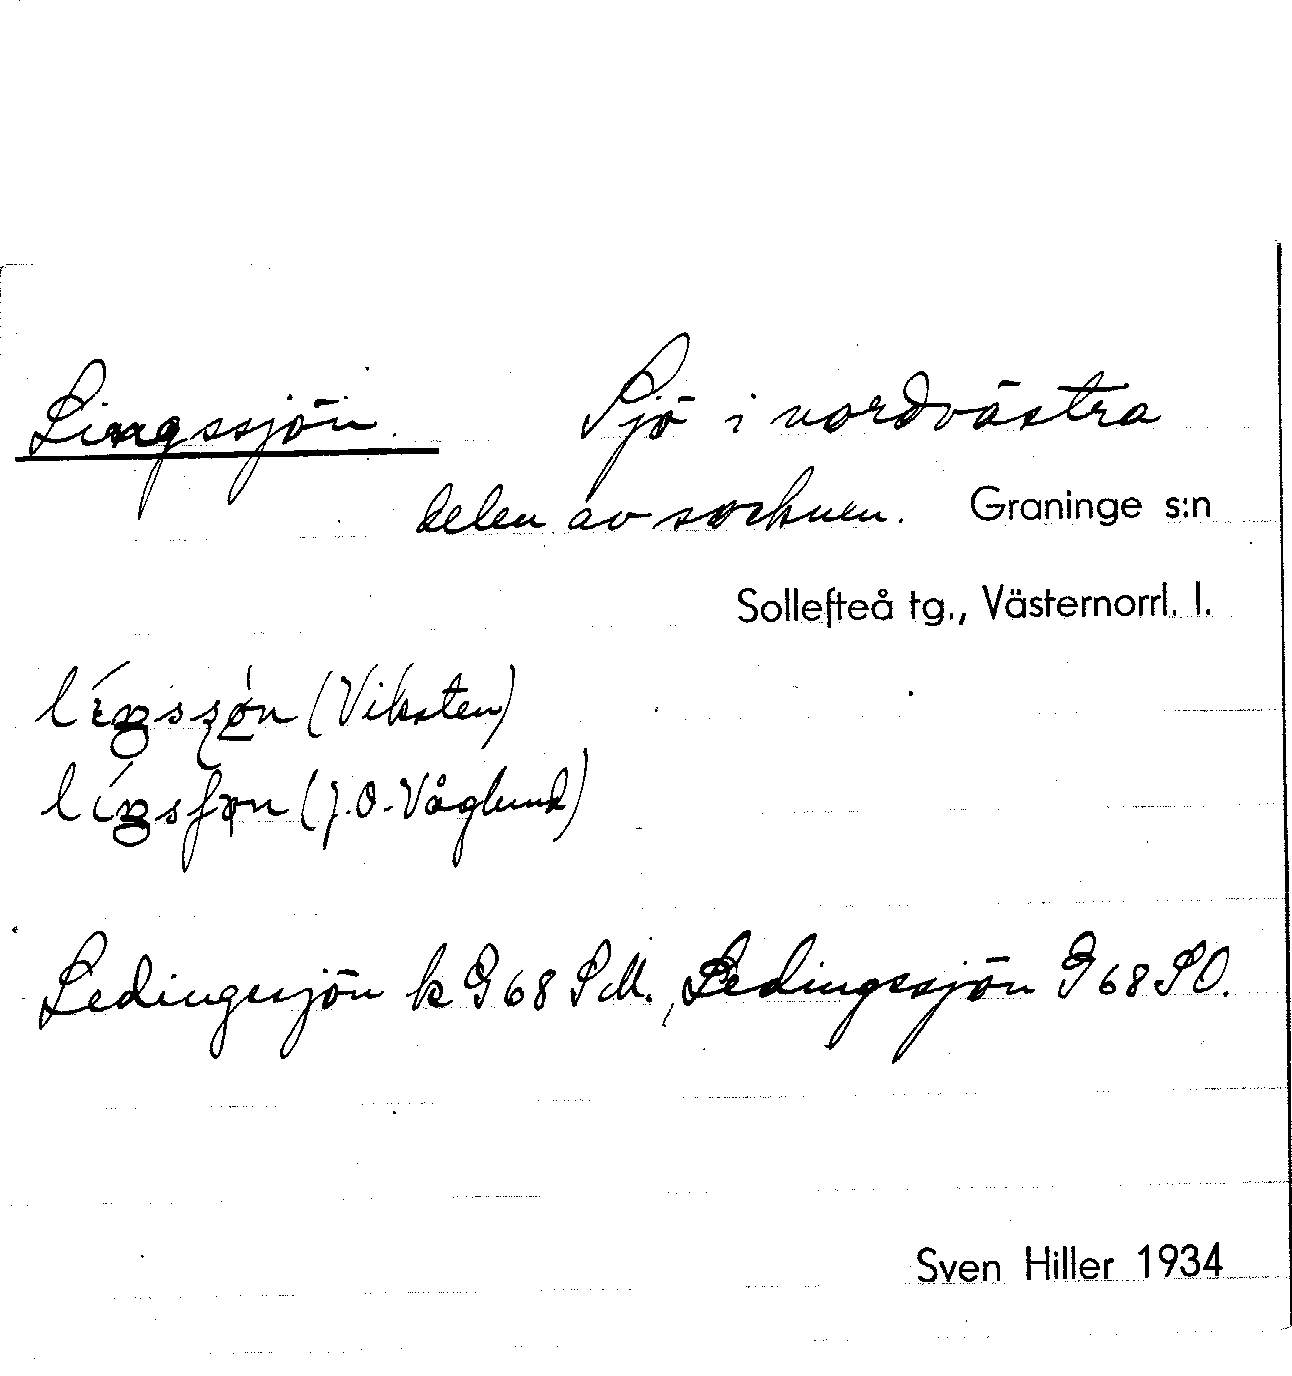 Lingssjön. Sjö i nordvästra
delen av socknen. Graninge s:n
Sollefteå tg., Västernorrl. l.
(Viksten)
(J.O. Våglund)
Ledingssjön k G 68 SM., Ledingssjön G 68 SO.
Sven Hiller 1934